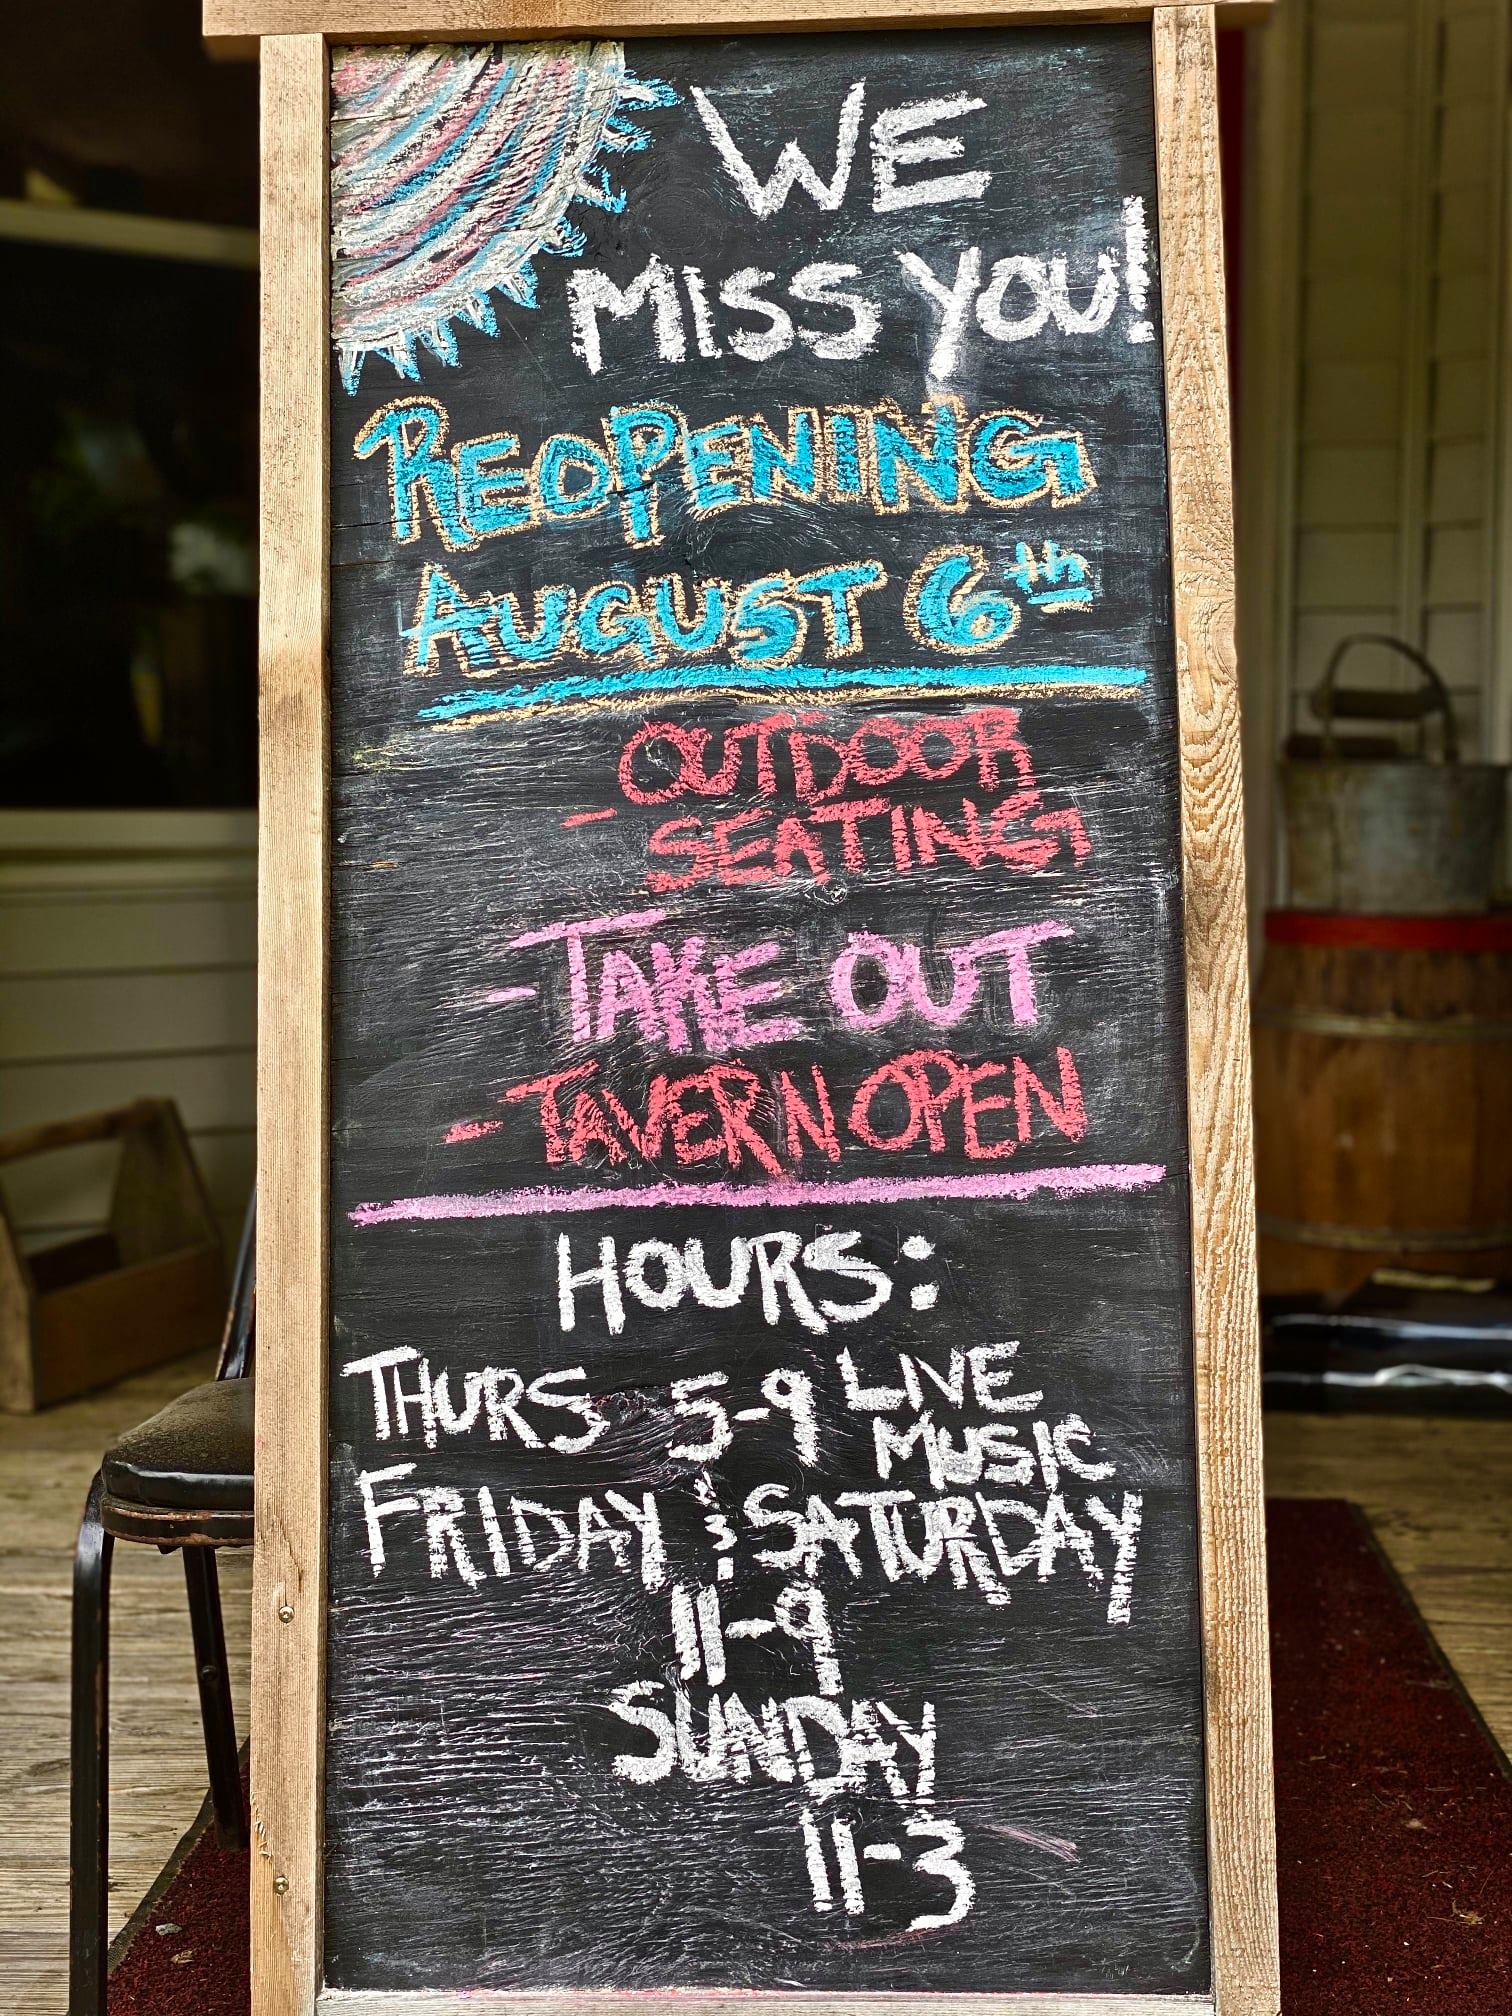 WE
MISS YOU!
REOPENING
AUGUST 6th
OUTDOOR
- SEATING
- TAKE OUT
- TAVERN OPEN
HOURS:
THURS 5-9 LIVE
MUSIC
FRIDAY & SATURDAY
11-9
SUNDAY
11-3